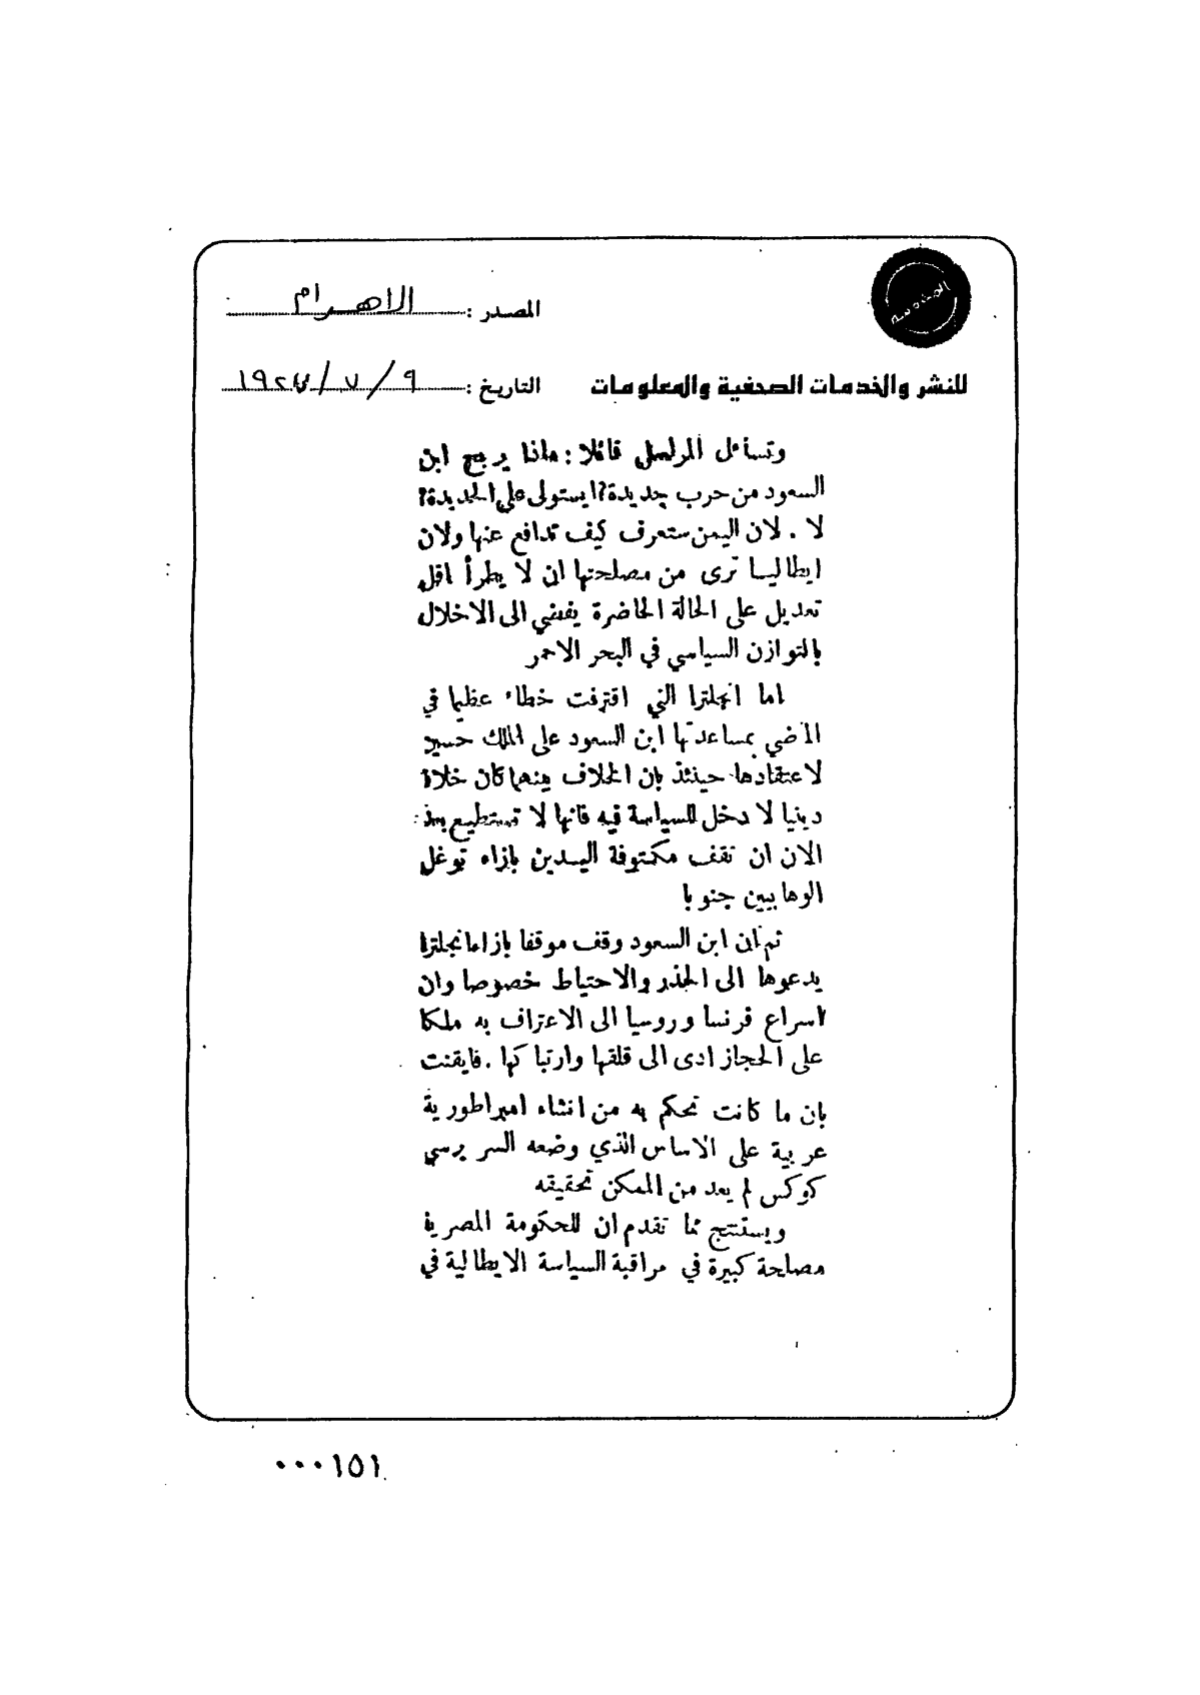 المصدر : الاهرام
للنشر والخدمات الصحفية والمعلومات التاريخ : ٩ / ٧ /
وتسأل المراسل قائلا : ماذا يرجح ابن
السعود من حرب جديدة؟ ايستولى على الحديدة؟
لا . لان اليمن ستعرف كيف تدافع عنها ولان
ايطاليا ترى من مصلحتها ان لا يطرأ اقل
تعديل على الحالة الحاضرة يفضي الى الاخلال
بالتوازن السياسي في البحر الاحمر
اما انجلترا التي اقترفت خطاء عظيما في
الماضي بمساعدتها ابن السعود على الملك حسين
لاعتقادها حينئذ بان الخلاف بينهما كان خلافا
دينيا لا دخل للسياسة فيه فانها لا تستطيع بعد
الان ان تقف مكتوفة اليدين بازاء توغل
الوهابيين جنوبا
ثم ان ابن السعود وقف موقفا بازاء انجلترا
يدعوها الى الحذر والاحتياط خصوصا وان
اسراع فرنسا وروسيا الى الاعتراف به ملكا
على الحجاز ادى الى قلقها وارتباكها . فايقنت
بان ما كانت تحكم به من انشاء امبراطورية
عربية على الاساس الذي وضعه السر برسي
كوكس لم يعد من الممكن تحقيقه
ويستنتج مما تقدم ان للحكومة المصرية
مصلحة كبيرة في مراقبة السياسة الايطالية في
٠٠٠١٥١